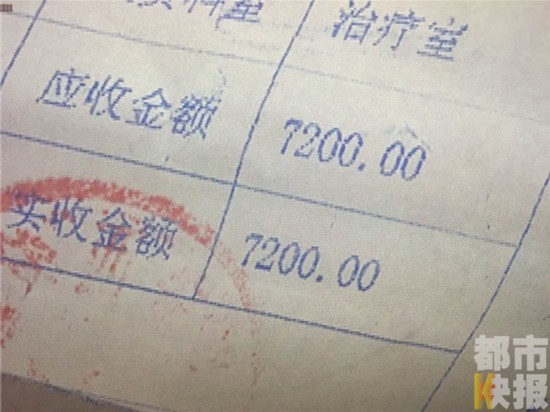 治疗室
应收金额 7200.00
实收金额 7200.00
都市
快报